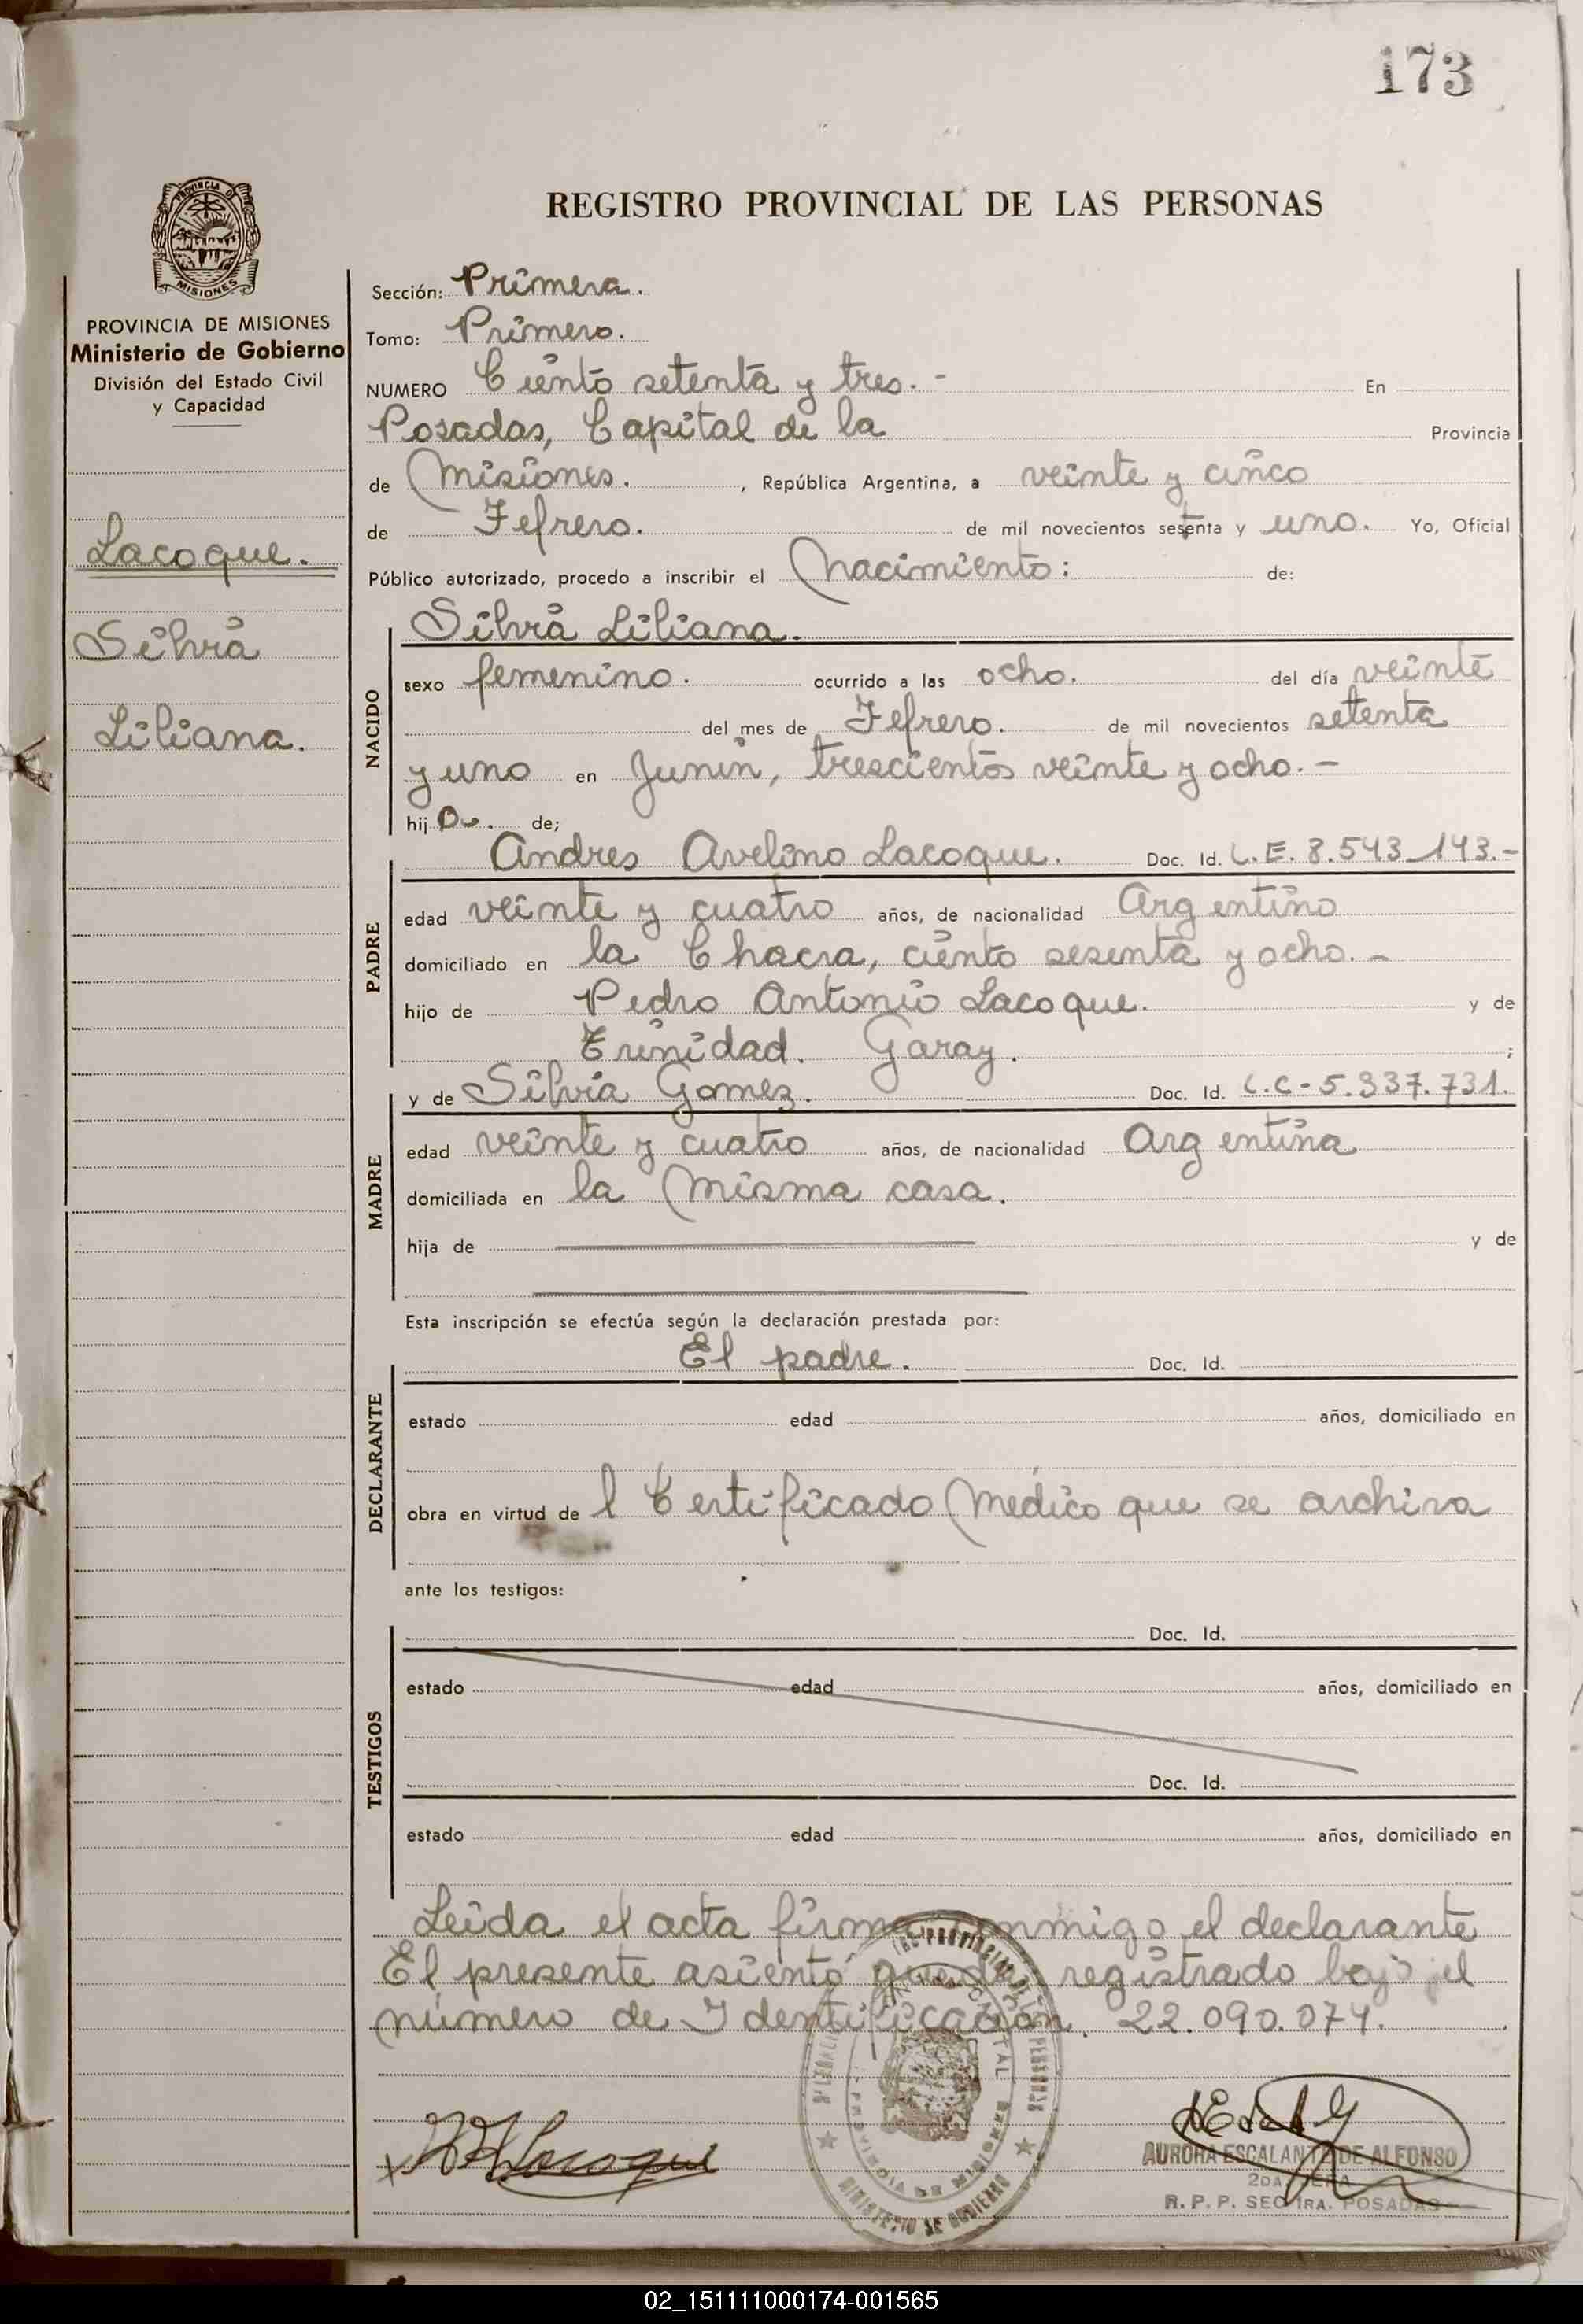 173
PROVINCIA DE MISIONES
REGISTRO PROVINCIAL DE LAS PERSONAS
PROVINCIA DE MISIONES
Ministerio de Gobierno
División del Estado Civil
y Capacidad
Lacoque.
Silvia
Liliana.
Sección: Primera.
Tomo: Primero.
NUMERO Ciento setenta y tres. - En
Posadas, Capital de la Provincia
de Misiones. , República Argentina, a veinte y cinco
de Febrero. de mil novecientos setenta y uno. Yo, Oficial
Público autorizado, procedo a inscribir el Nacimiento: de:
NACIDO
Silvia Liliana.
sexo femenino. ocurrido a las ocho. del día veinte
del mes de Febrero. de mil novecientos setenta
y uno en Junin, trescientos veinte y ocho. -
hij a. de;
PADRE
Andres Avelino Lacoque. Doc. Id. L.E. 8.543.143.-
edad veinte y cuatro años, de nacionalidad Argentino
domiciliado en la Chacra, ciento sesenta y ocho. -
hijo de Pedro Antonio Lacoque. y de
Trinidad. Garay. ;
MADRE
y de Silvia Gomez. Doc. Id. L.C-5.337.731.
edad veinte y cuatro años, de nacionalidad Argentina
domiciliada en la Misma casa.
hija de y de
Esta inscripción se efectúa según la declaración prestada por:
DECLARANTE
El padre. Doc. Id.
estado edad años, domiciliado en
obra en virtud de l Certificado Medico que se archiva
ante los testigos:
TESTIGOS
Doc. Id.
estado edad años, domiciliado en
Doc. Id.
estado edad años, domiciliado en
Leida el acta firma conmigo el declarante
El presente asiento queda registrado bajo el
número de Identificación. 22.090.074.
AURORA ESCALANTE DE ALFONSO
2DA. JEFA
R. P. P. SEC. 1RA. POSADAS
MINISTERIO DE GOBIERNO
PROVINCIA DE MISIONES
02_151111000174-001565